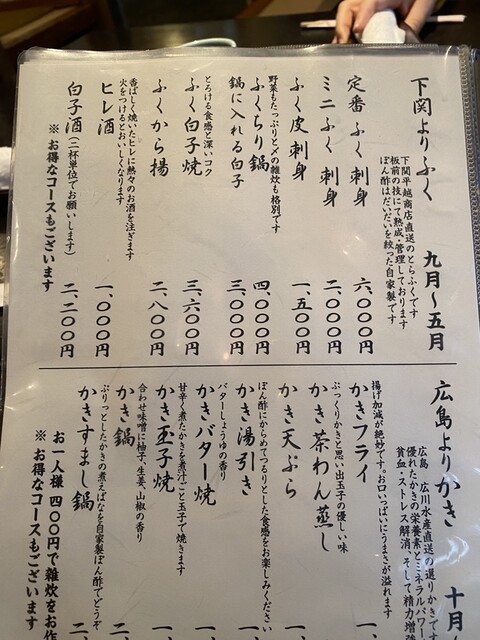 下関よりふく 九月〜五月
下関平越商店直送のとらふくです
板前の技にて熟成・管理しております
ぽん酢はだいだいを絞った自家製です
定番 ふく 刺身 六、〇〇〇円
ミニふく 刺身 三、〇〇〇円
ふく皮刺身 一、五〇〇円
ふくちり鍋 四、〇〇〇円
野菜もたっぷりと〆の雑炊も格別です
鍋に入れる白子 三、〇〇〇円
ふく白子焼 三、六〇〇円
とろける食感と深いコク
ふくから揚 二、八〇〇円
ヒレ酒 一、〇〇〇円
香ばしく焼いたヒレに熱々のお酒を注ぎます
火をつけるとおいしくなります
白子酒(二杯単位でお願いします) 二、二〇〇円
※お得なコースもございます
広島よりかき 十月
広島 広川水産直送の選りかきで
優れたかきの栄養素とミネラルパワー
貧血・ストレス解消、そして精力増強
かきフライ 一、
揚げ加減が絶妙です。お口いっぱいにうまさが溢れます
かき茶わん蒸し
ぷっくりかきと思い出玉子の優しい味
かき天ぷら 一、
かき湯引き 一、
ぽん酢にからめてつるりとした食感をお楽しみください
かきバター焼 一、
バターしょうゆの香り
かき玉子焼 一、
甘辛く煮たかきを煮汁ごと玉子で焼きます
かき鍋 二、
合わせ味噌に柚子、生姜、山椒の香り
かきすまし鍋 二、
ぷりっとしたかきの煮えばなを自家製ぽん酢でどうぞ
お一人様 四〇〇円で雑炊をお作
※お得なコースもございます